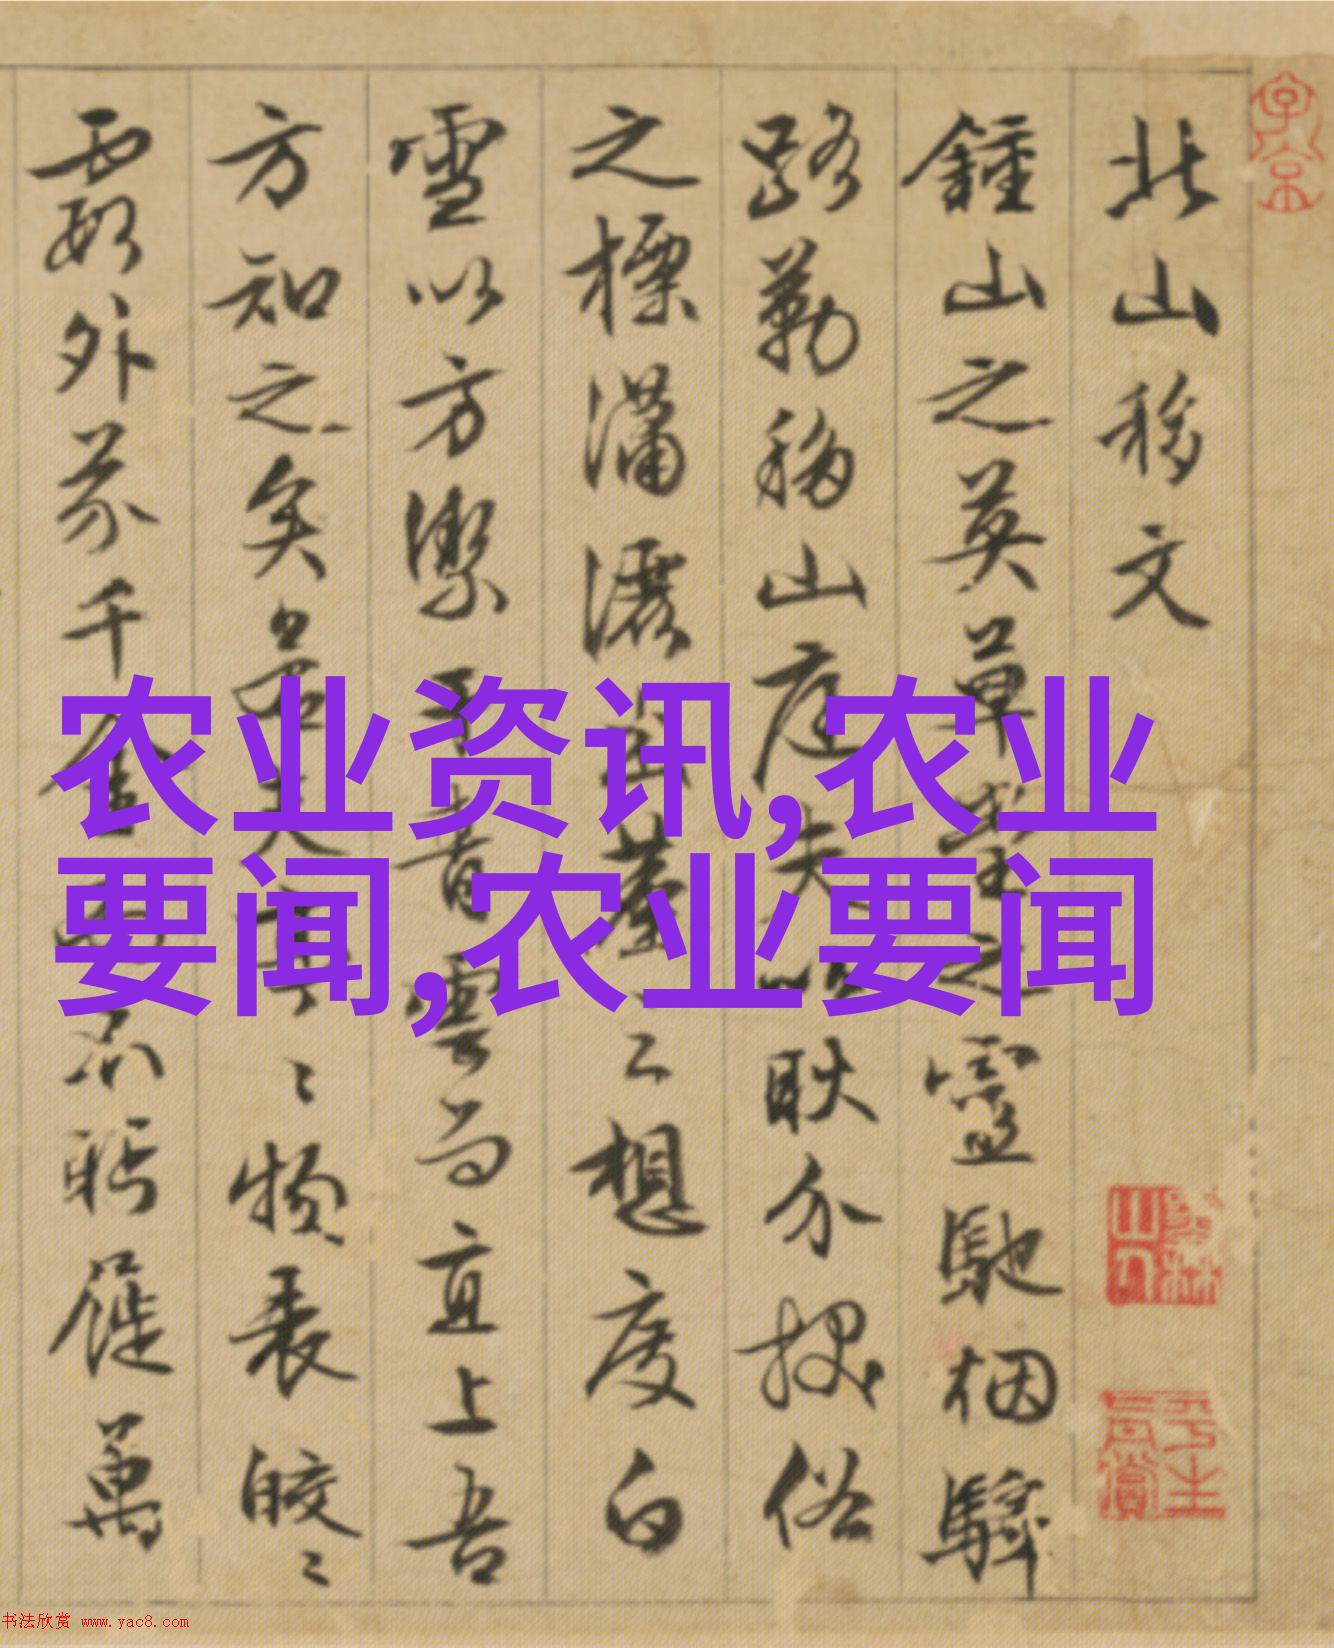 北山移文
鍾山之英草堂之靈馳烟驛
路勒移山庭夫以耿介拔俗
之標瀟灑出塵之想度白
雪以方潔干青雲而直上吾
方知之矣若夫亭〻物表皎〻
霞外芥千金而不眄屣萬
子京
墨林山人
平生真賞
农业资讯,农业
要闻,农业要闻
书法欣赏 www.yac8.com